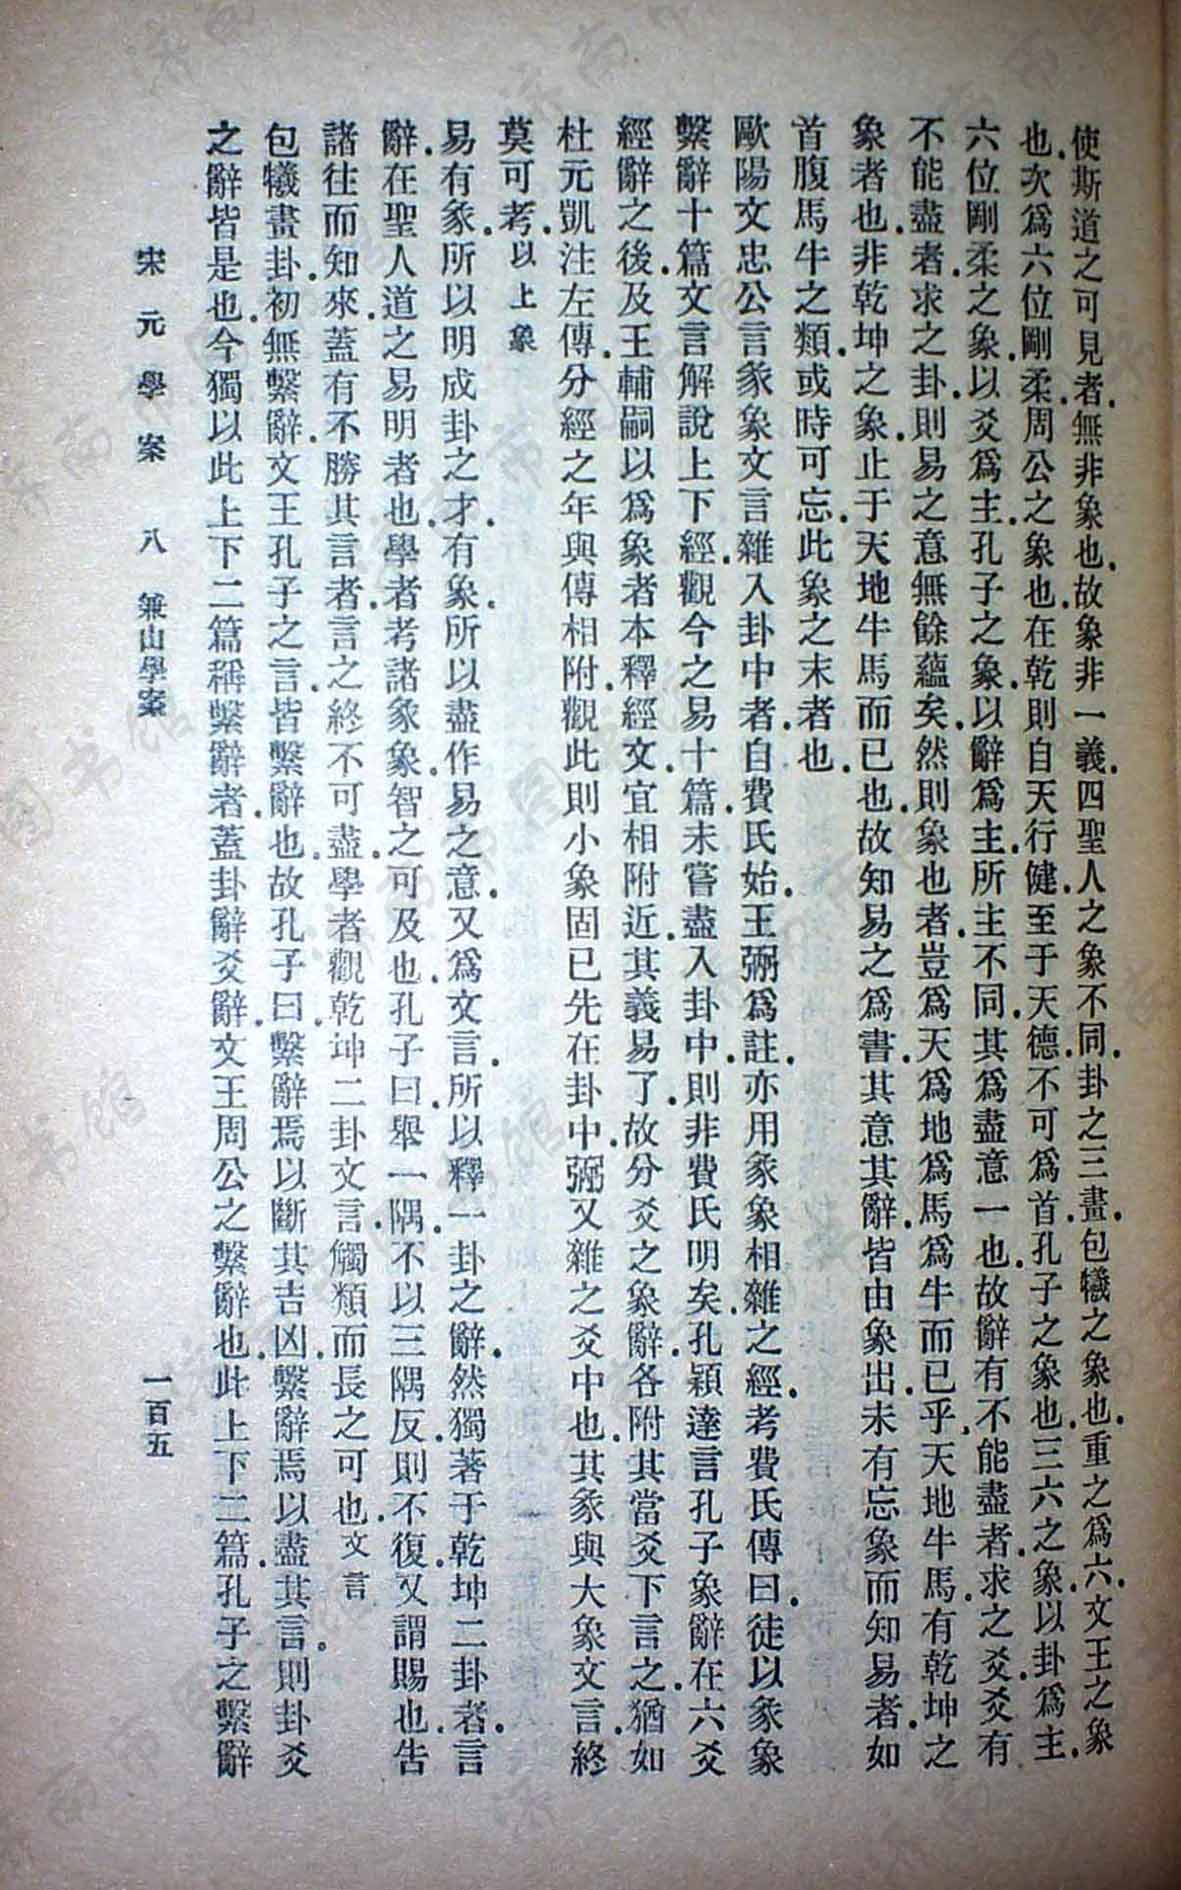 使斯道之可見者.無非象也.故象非一義.四聖人之象不同.卦之三畫.包犧之象也.重之爲六.文王之象
也.次爲六位剛柔.周公之象也.在乾則曰天行健.至于天德.不可爲首.孔子之象也.三六之象.以卦爲主.
六位剛柔之象.以爻爲主.孔子之象.以辭爲主.所主不同.其爲盡意一也.故辭有不能盡者.求之爻.爻有
不能盡者.求之卦.則易之意無餘蘊矣.然則象也者.豈爲天爲地爲馬爲牛而已乎.天地牛馬.有乾坤之
象者也.非乾坤之象.止于天地牛馬而已也.故知易之爲書.其意其辭.皆由象出.未有忘象而知易者.如
首腹馬牛之類.或時可忘.此象之末者也.
歐陽文忠公言彖象文言雜入卦中者.自費氏始.王弼爲註.亦用彖象相雜之經.考費氏傳曰.徒以彖象
繫辭十篇文言解說上下經.觀今之易十篇.未嘗盡入卦中.則非費氏明矣.孔穎達言孔子象辭.在六爻
經辭之後.及王輔嗣以爲象者本釋經文.宜相附近.其義易了.故分爻之象辭.各附其當爻下言之.猶如
杜元凱注左傳.分經之年與傳相附.觀此則小象固已先在卦中.弼又雜之爻中也.其彖與大象文言.終
莫可考.以上象
易有彖.所以明成卦之才.有象.所以盡作易之意.又爲文言.所以釋一卦之辭.然獨著于乾坤二卦者.言
辭在聖人道之易明者也.學者考諸彖象.智之可及也.孔子曰.舉一隅.不以三隅反.則不復.又謂賜也.告
諸往而知來.蓋有不勝其言者.言之終不可盡.學者觀乾坤二卦文言.觸類而長之可也.文言
包犧畫卦.初無繫辭.文王孔子之言.皆繫辭也.故孔子曰.繫辭焉以斷其吉凶.繫辭焉以盡其言.則卦爻
之辭皆是也.今獨以此上下二篇稱繫辭者.蓋卦辭爻辭.文王周公之繫辭也.此上下二篇.孔子之繫辭
宋元學案 八 兼山學案 一百五